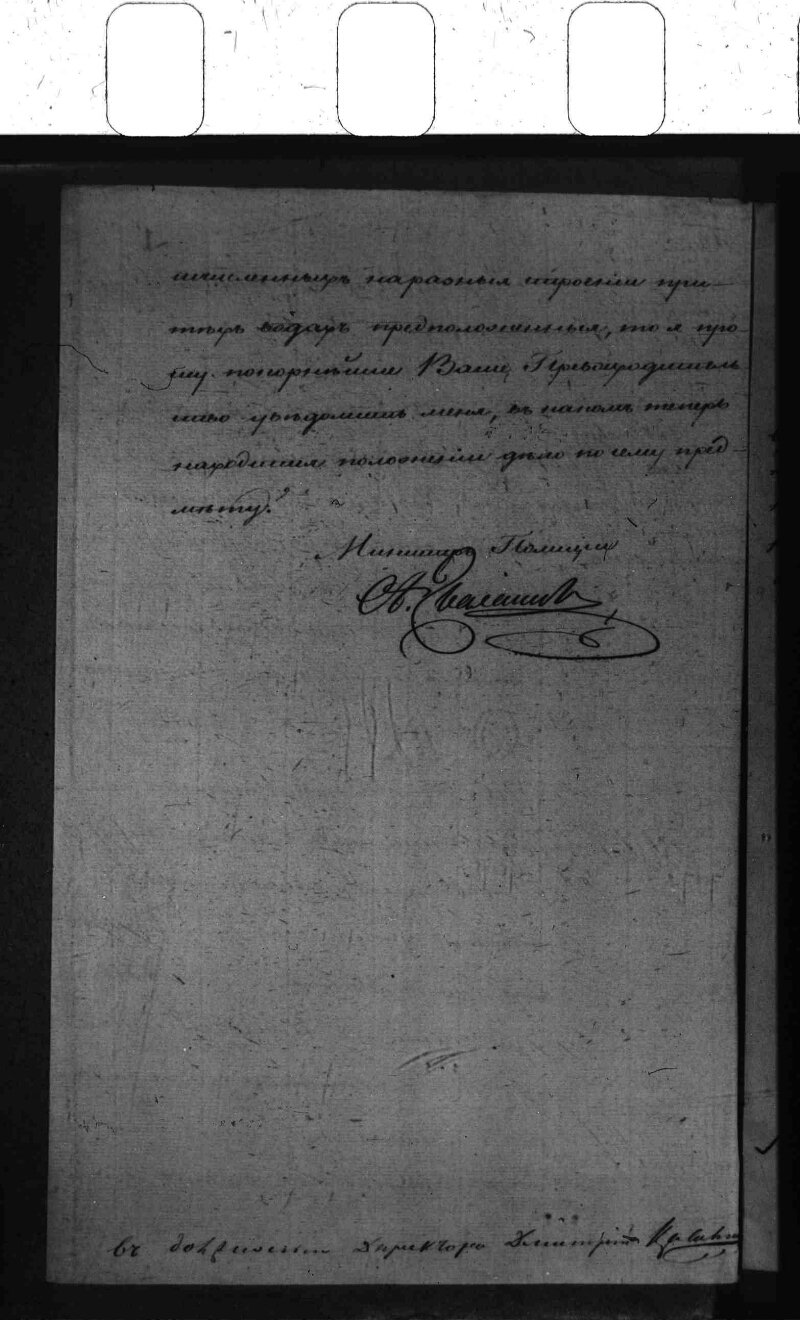 численныхъ на разныя строенія при
тѣхъ водахъ предположенныя, то я про-
шу покорнѣйше Ваше Превосходитель
ство увѣдомить меня, въ какомъ теперь
находится положеніи дѣло по сему пред-
мѣту.
Министръ Полиціи
А. Балашов
въ должности Директора Дмитрій